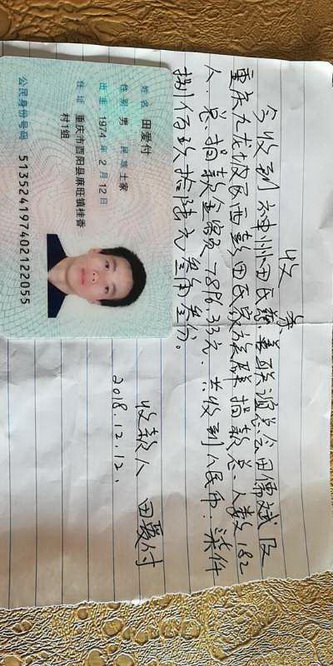 收条
今收到神州田氏慈善联谊总会田儒斌及
重庆九龙坡区西彭田氏家族群捐款总人数182
人.总捐款金额7896.33元.共收到人民币:柒仟
捌佰玖拾陆元叁角叁分。
收款人 田爱付
2018.12.12.
姓名 田爱付
性别 男 民族 土家
出生 1974年2月12日
住址 重庆市酉阳县麻旺镇桂香
村1组
公民身份号码 513524197402122055